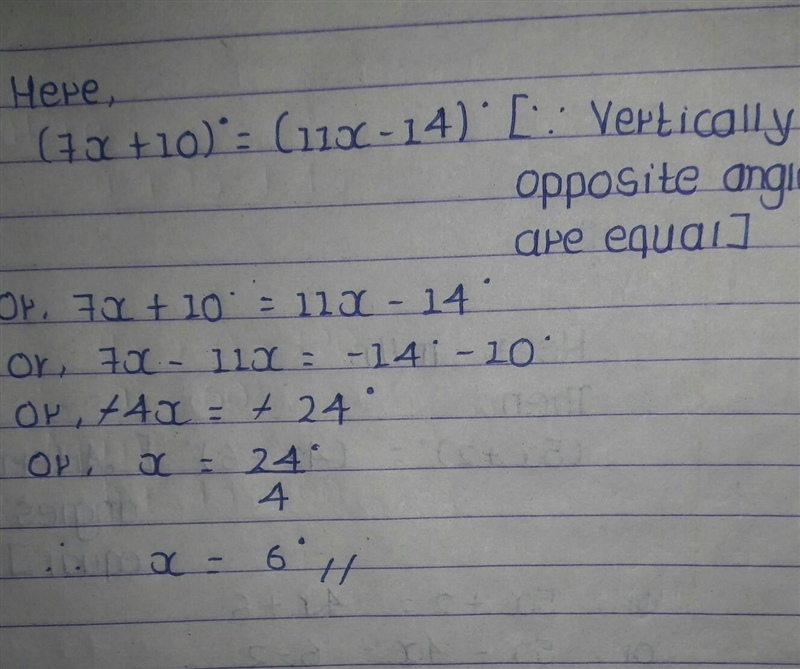 Here,
(7x+10)° = (11x-14)° [∵ Vertically
opposite
are equal]
Or, 7x + 10° = 11x - 14°
Or, 7x - 11x = -14° - 10°
Or, -4x = - 24°
Or, x = 24°/4
∴ x = 6° //